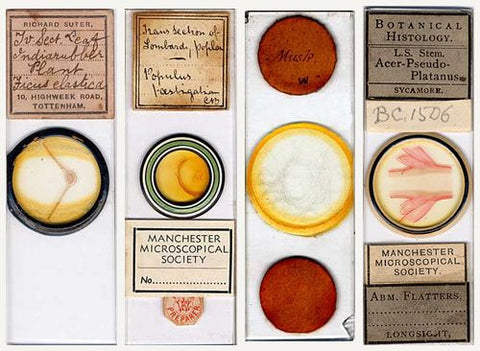 RICHARD SUTER,
Tv. Sect. Leaf
Indiarubber
Plant
Ficus elastica
10, HIGHWEEK ROAD,
TOTTENHAM.
Trans section of
Lombardy poplar
Populus
fastigation
MANCHESTER
MICROSCOPICAL
SOCIETY
No.
PREPARER
W
BOTANICAL
HISTOLOGY.
L.S. Stem.
Acer-Pseudo-
Platanus.
SYCAMORE.
BC.1506
MANCHESTER
MICROSCOPICAL
SOCIETY.
ABM. FLATTERS,
LONGSIGHT,